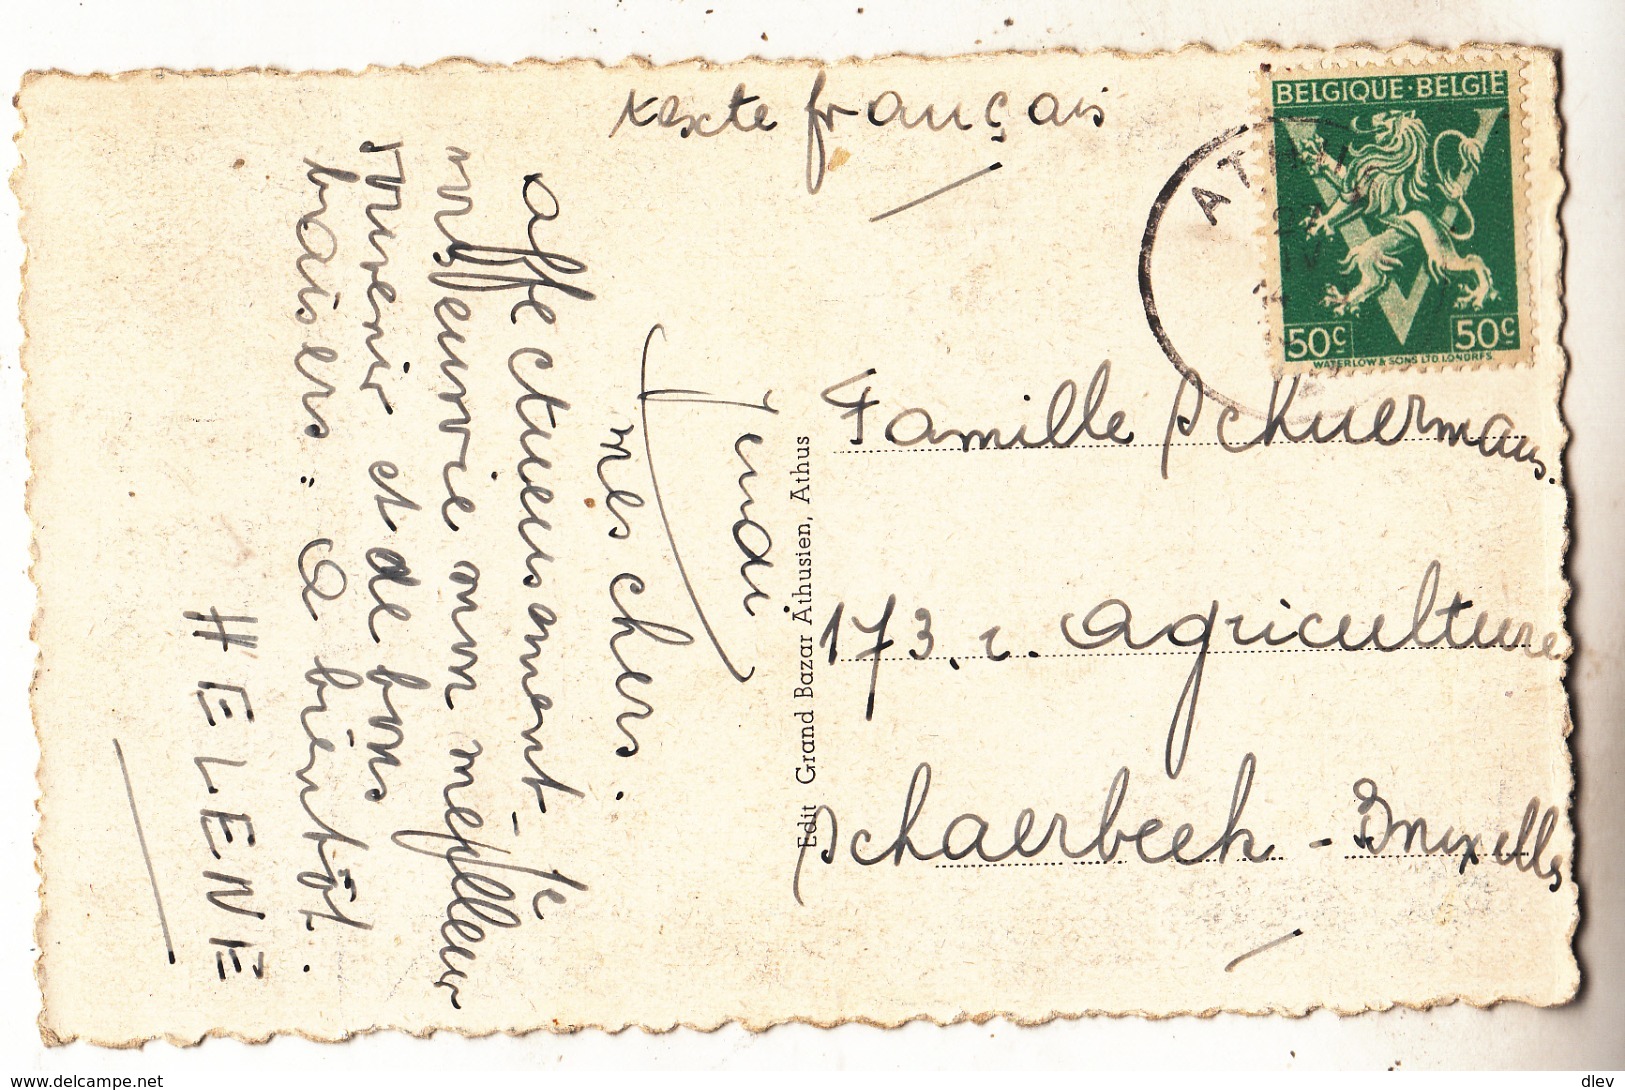 texte français
BELGIQUE·BELGIE
50c 50c
WATERLOW & SONS LTD. LONDRES.
ATHUS
Famille Schuermans.
173. r. agriculture
Schaerbeek - Bruxelles
Edit Grand Bazar Athusien, Athus
Jeudi
mes chers.
affectueusement - te
vous envoie mon meilleur
souvenir et de bons
baisers. A bientôt.
HELENE
www.delcampe.net
dlev